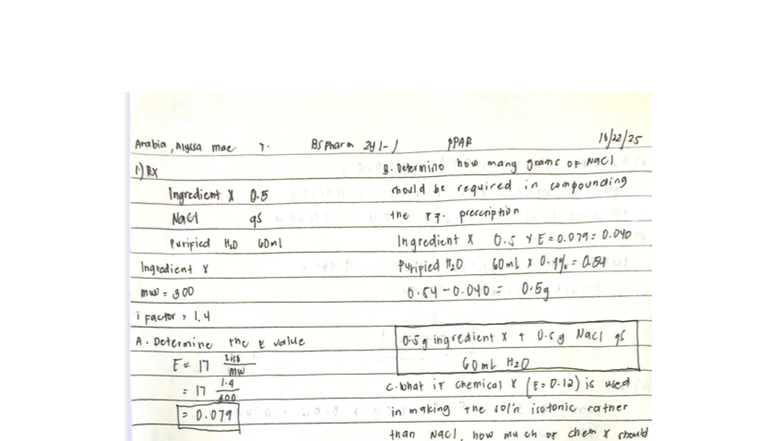 Arabia, Alyssa mae T. BSPharm 2y1-1 PPAR 10/22/25
1.) Rx
Ingredient X 0.5
NaCl qs
Purified H₂O 60ml
Ingredient X
mw = 300
i factor = 1.4
A. Determine the E value
E = 17 Liso/MW
= 17 1.4/300
= 0.079
B. Determine how many grams of NaCl
should be required in compounding
the prescription
Ingredient X 0.5 X E = 0.079 = 0.040
Purified H₂O 60mL X 0.9% = 0.54
0.54 - 0.040 = 0.5g
0.5g ingredient X + 0.5g NaCl qs
60mL H₂O
C. What if chemical X (E=0.12) is used
in making the sol'n isotonic rather
than NaCl, how much of chem X should